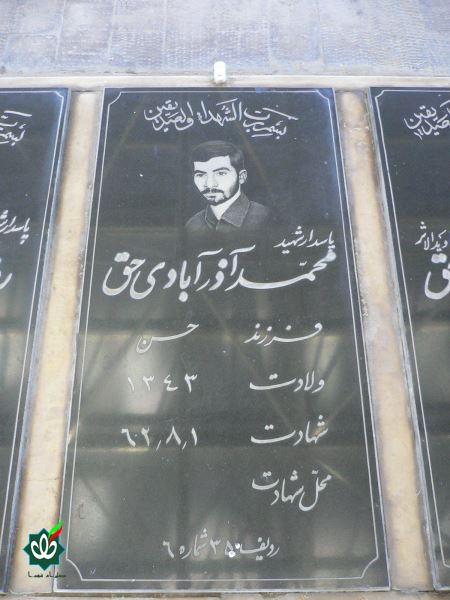 بسم رب الشهداء و الصدیقین
پاسدار شهید
محمد آذرآبادی حق
فرزند حسن
ولادت ۱۳۴۳
شهادت ۶۲٫۸٫۱
محلّ شهادت
ردیف ۳۵ شماره ۶
پاسدار